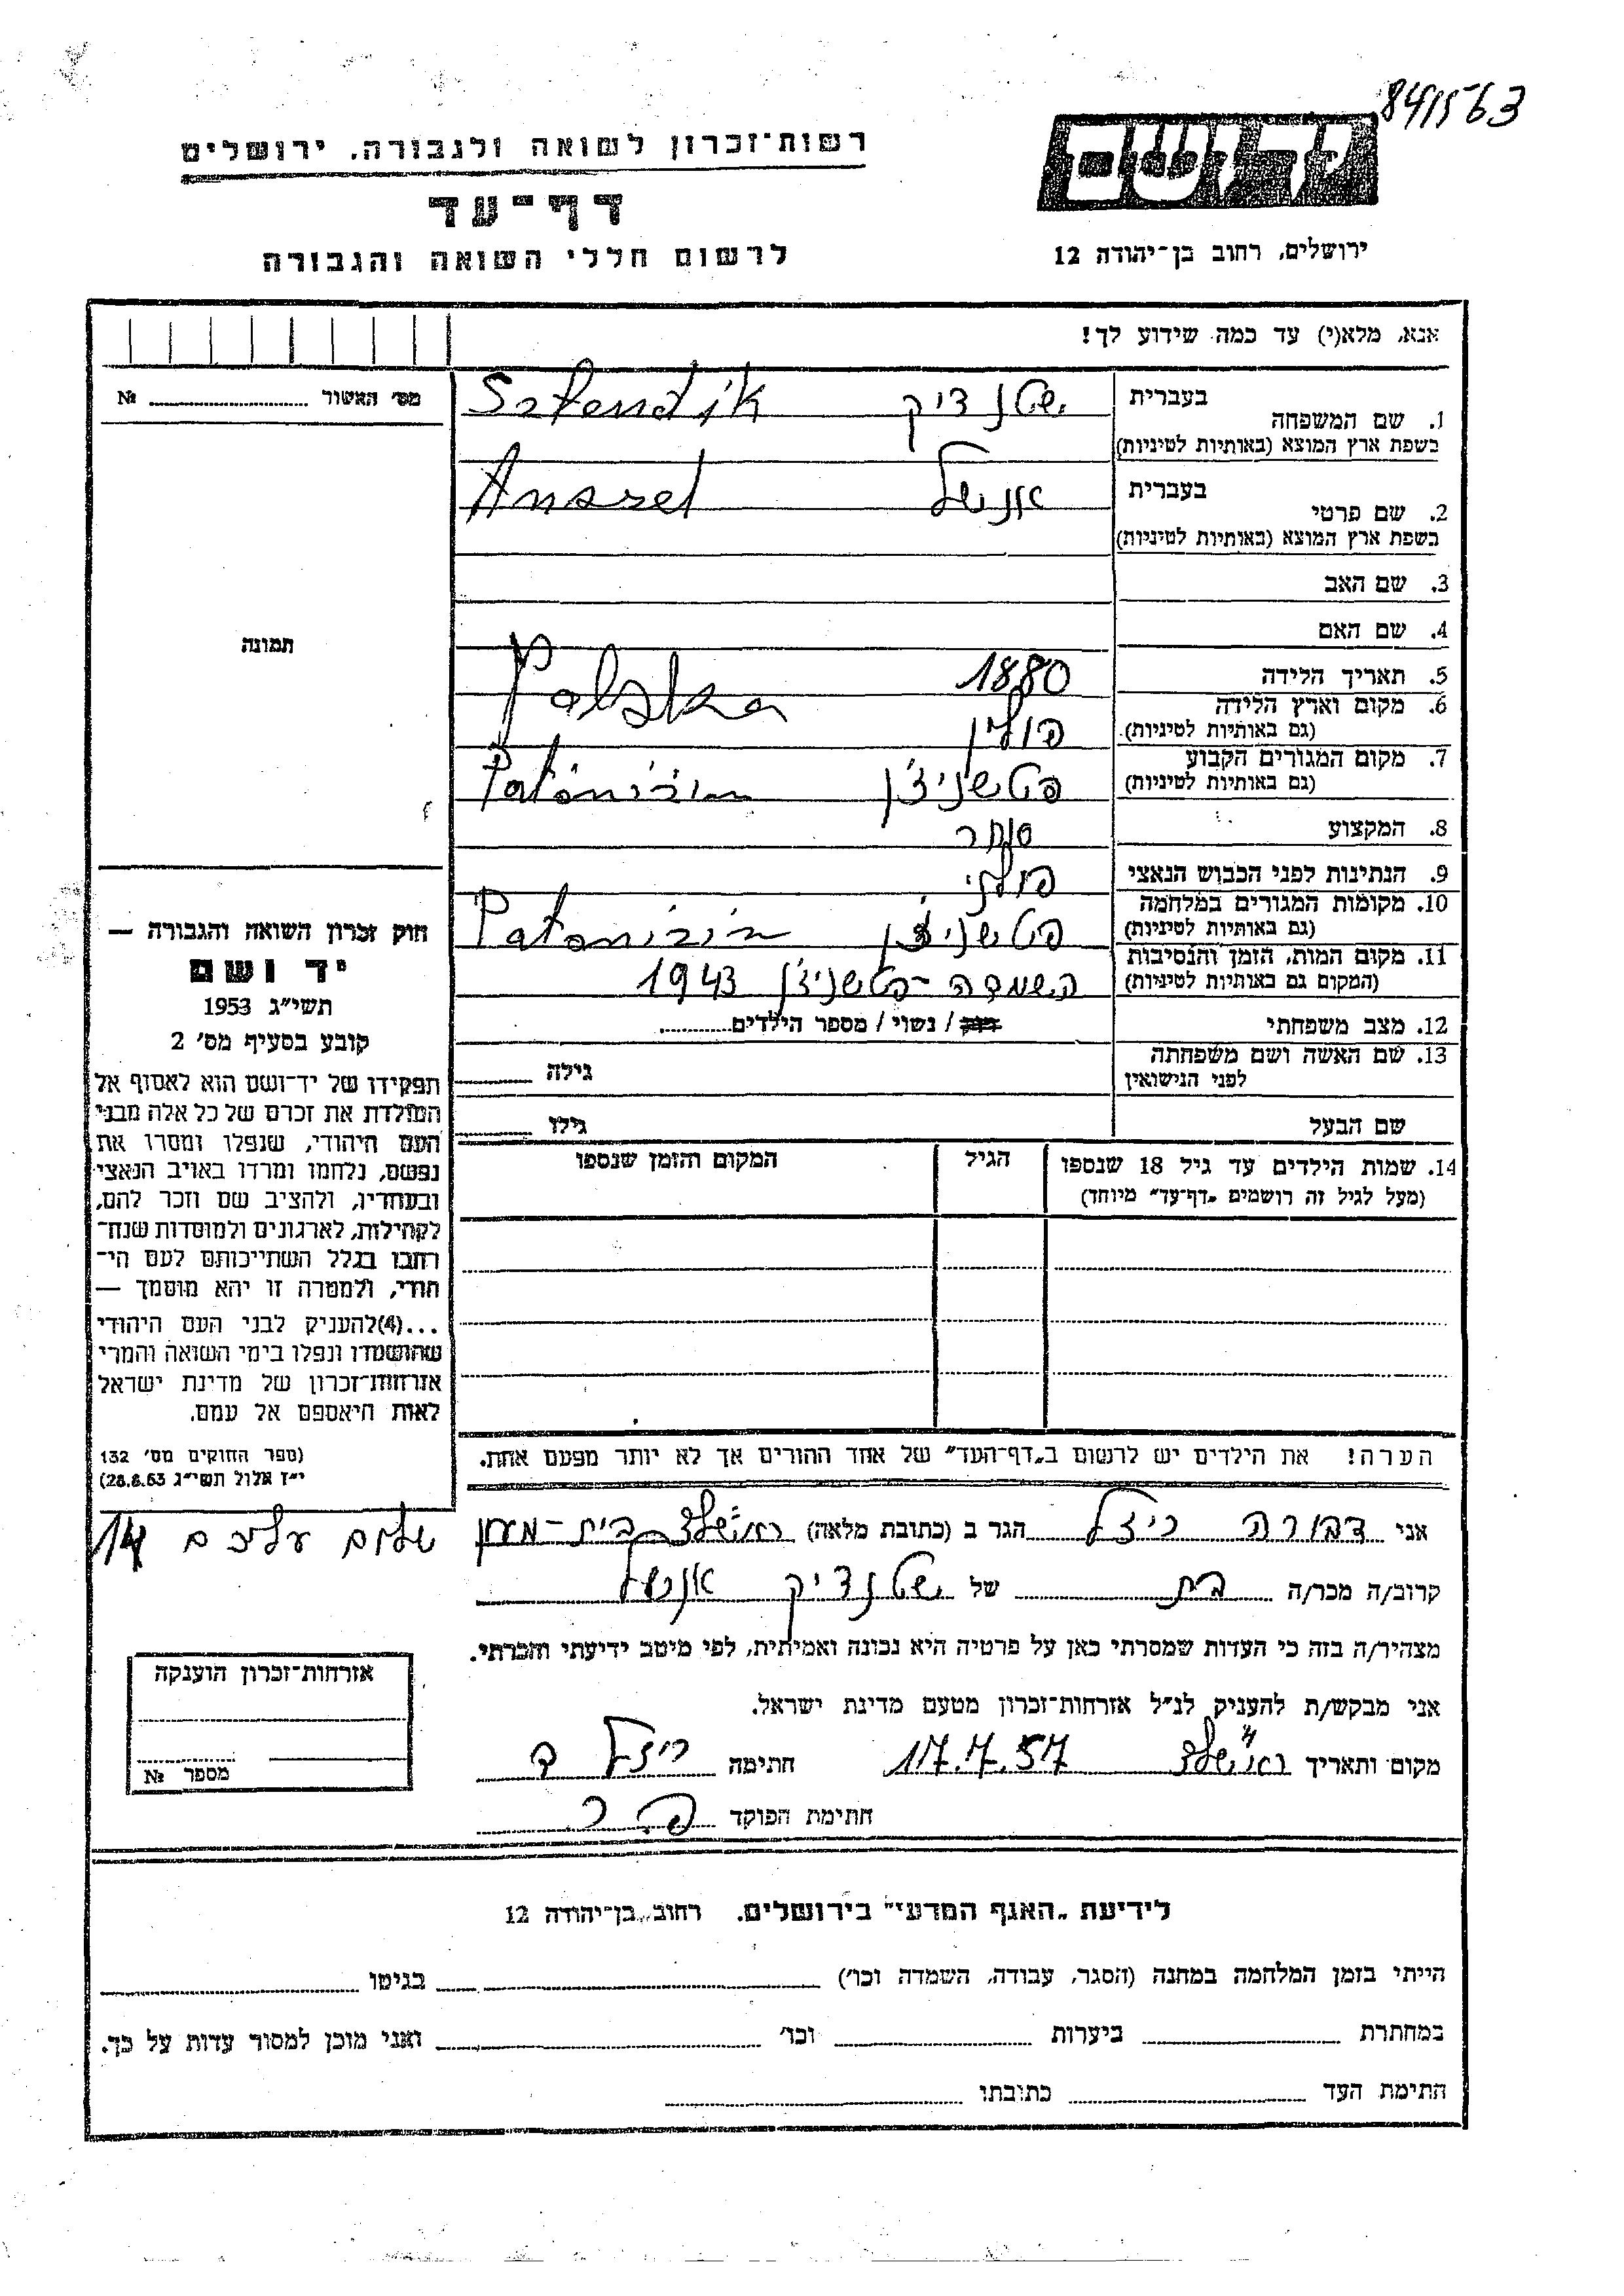 841563
יד ושם
רשות־זכרון לשואה ולגבורה. ירושלים
דף־עד
לרשום חללי השואה והגבורה
ירושלים, רחוב בן־יהודה 12
אנא, מלא(י) עד כמה שידוע לך!
מס׳ האשור № 
1. שם המשפחה בעברית שטנדיק Sztendik
בשפת ארץ המוצא (באותיות לטיניות)
2. שם פרטי בעברית אנשל Anszel
בשפת ארץ המוצא (באותיות לטיניות)
3. שם האב
4. שם האם
תמונה
5. תאריך הלידה 1880
6. מקום וארץ הלידה פולין Polska
(גם באותיות לטיניות)
7. מקום המגורים הקבוע פטשניצ'ן
(גם באותיות לטיניות)
8. המקצוע סוחר
9. הנתינות לפני הכבוש הנאצי פולני
10. מקומות המגורים במלחמה פטשניצ'ן
(גם באותיות לטיניות)
11. מקום המות, הזמן והנסיבות השמדה - פטשניצ'ן 1943
(המקום גם באותיות לטיניות)
12. מצב משפחתי רוק / נשוי / מספר הילדים
13. שם האשה ושם משפחתה גילה
לפני הנישואין
שם הבעל גילו
14. שמות הילדים עד גיל 18 שנספו הגיל המקום והזמן שנספו
(מעל לגיל זה רושמים „דף־עד״ מיוחד)
חוק זכרון השואה והגבורה —
יד ושם
תשי״ג 1953
קובע בסעיף מס׳ 2
תפקידו של יד־ושם הוא לאסוף אל
המולדת את זכרם של כל אלה מבני
העם היהודי, שנפלו ומסרו את
נפשם, נלחמו ומרדו באויב הנאצי
ובעוזריו, ולהציב שם וזכר להם,
לקהילות, לארגונים ולמוסדות שנח־
רבו בגלל השתייכותם לעם הי־
הודי, ולמטרה זו יהא מוסמך —
...(4)להעניק לבני העם היהודי
שהושמדו ונפלו בימי השואה והמרי
אזרחות־זכרון של מדינת ישראל
לאות היאספם אל עמם.
(ספר החוקים מס׳ 132
י״ז אלול תשי״ג 28.8.53)
הערה! את הילדים יש לרשום ב„דף־העד״ של אחד ההורים אך לא יותר מפעם אחת.
אני דבורה הגר ב (כתובת מלאה) ראשל"צ
שלום עליכם 14
קרוב/ה מכר/ה בת של שטנדיק אנשל
מצהיר/ה בזה כי העדות שמסרתי כאן על פרטיה היא נכונה ואמיתית, לפי מיטב ידיעתי והכרתי.
אני מבקש/ת להעניק לנ״ל אזרחות־זכרון מטעם מדינת ישראל.
מקום ותאריך ראשל"צ 17.7.57 חתימה
חתימת הפוקד
אזרחות־זכרון הוענקה
מספר №
לידיעת „האגף המדעי״ בירושלים. רחוב בן־יהודה 12
הייתי בזמן המלחמה במחנה (הסגר, עבודה, השמדה וכו׳) בגיטו
במחתרת ביערות וכו׳ ואני מוכן למסור עדות על כך.
חתימת העד כתובתו